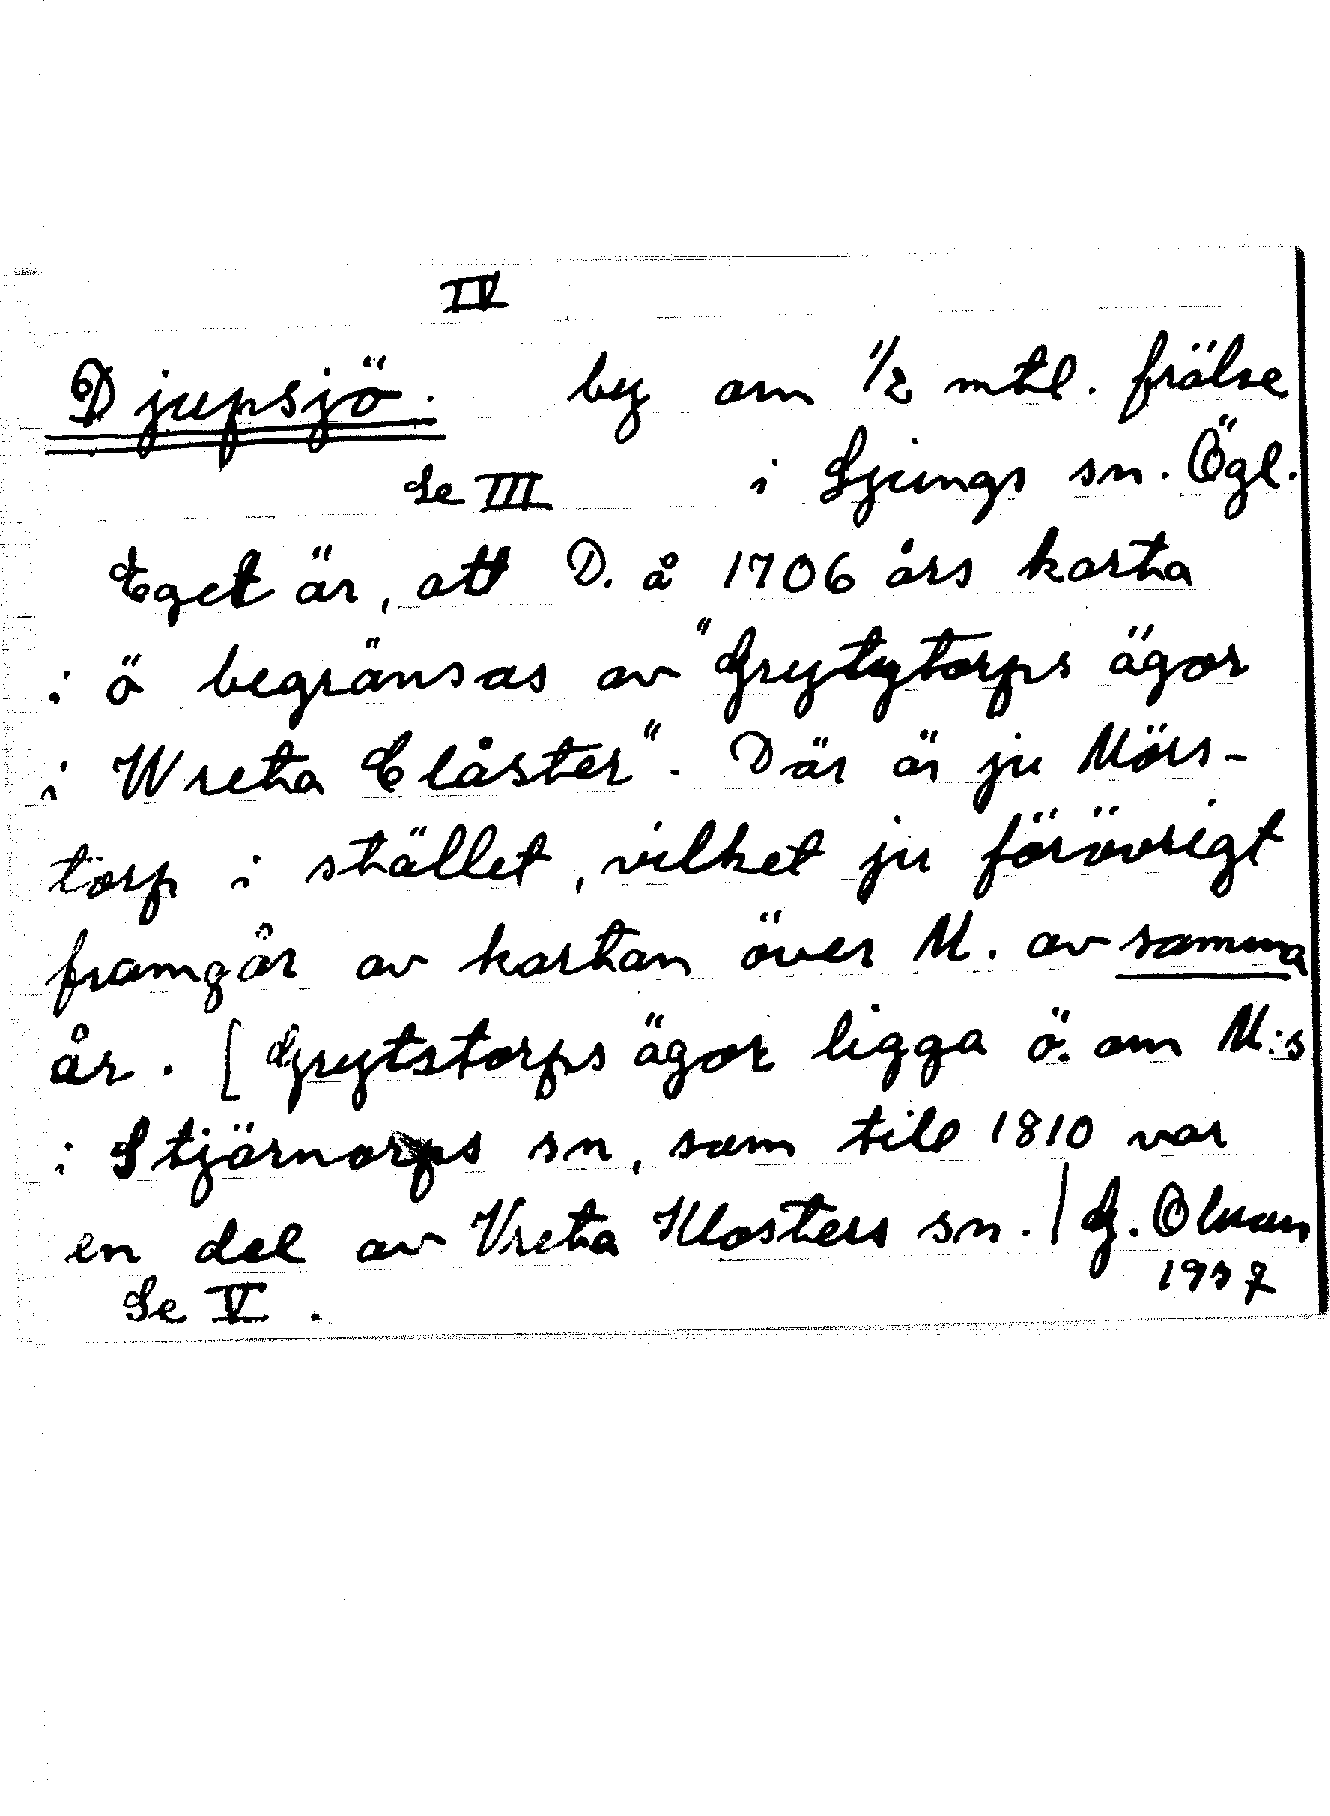 IV
Djupsjö. by om 1/2 mtl. frälse
Se III i Ljungs sn. Ögl.
Eget är, att D. å 1706 års karta
i ö begränsas av "Grytgtorps ägor
i Wreta Clåster". Där är ju Mörs-
torp i stället, vilket ju förövrigt
framgår av kartan över M. av samma
år. [Grytstorps ägor ligga ö. om M:s
i Stjärnorps sn, som till 1810 var
en del av Vreta Klosters sn. / G.
1937
Se V.